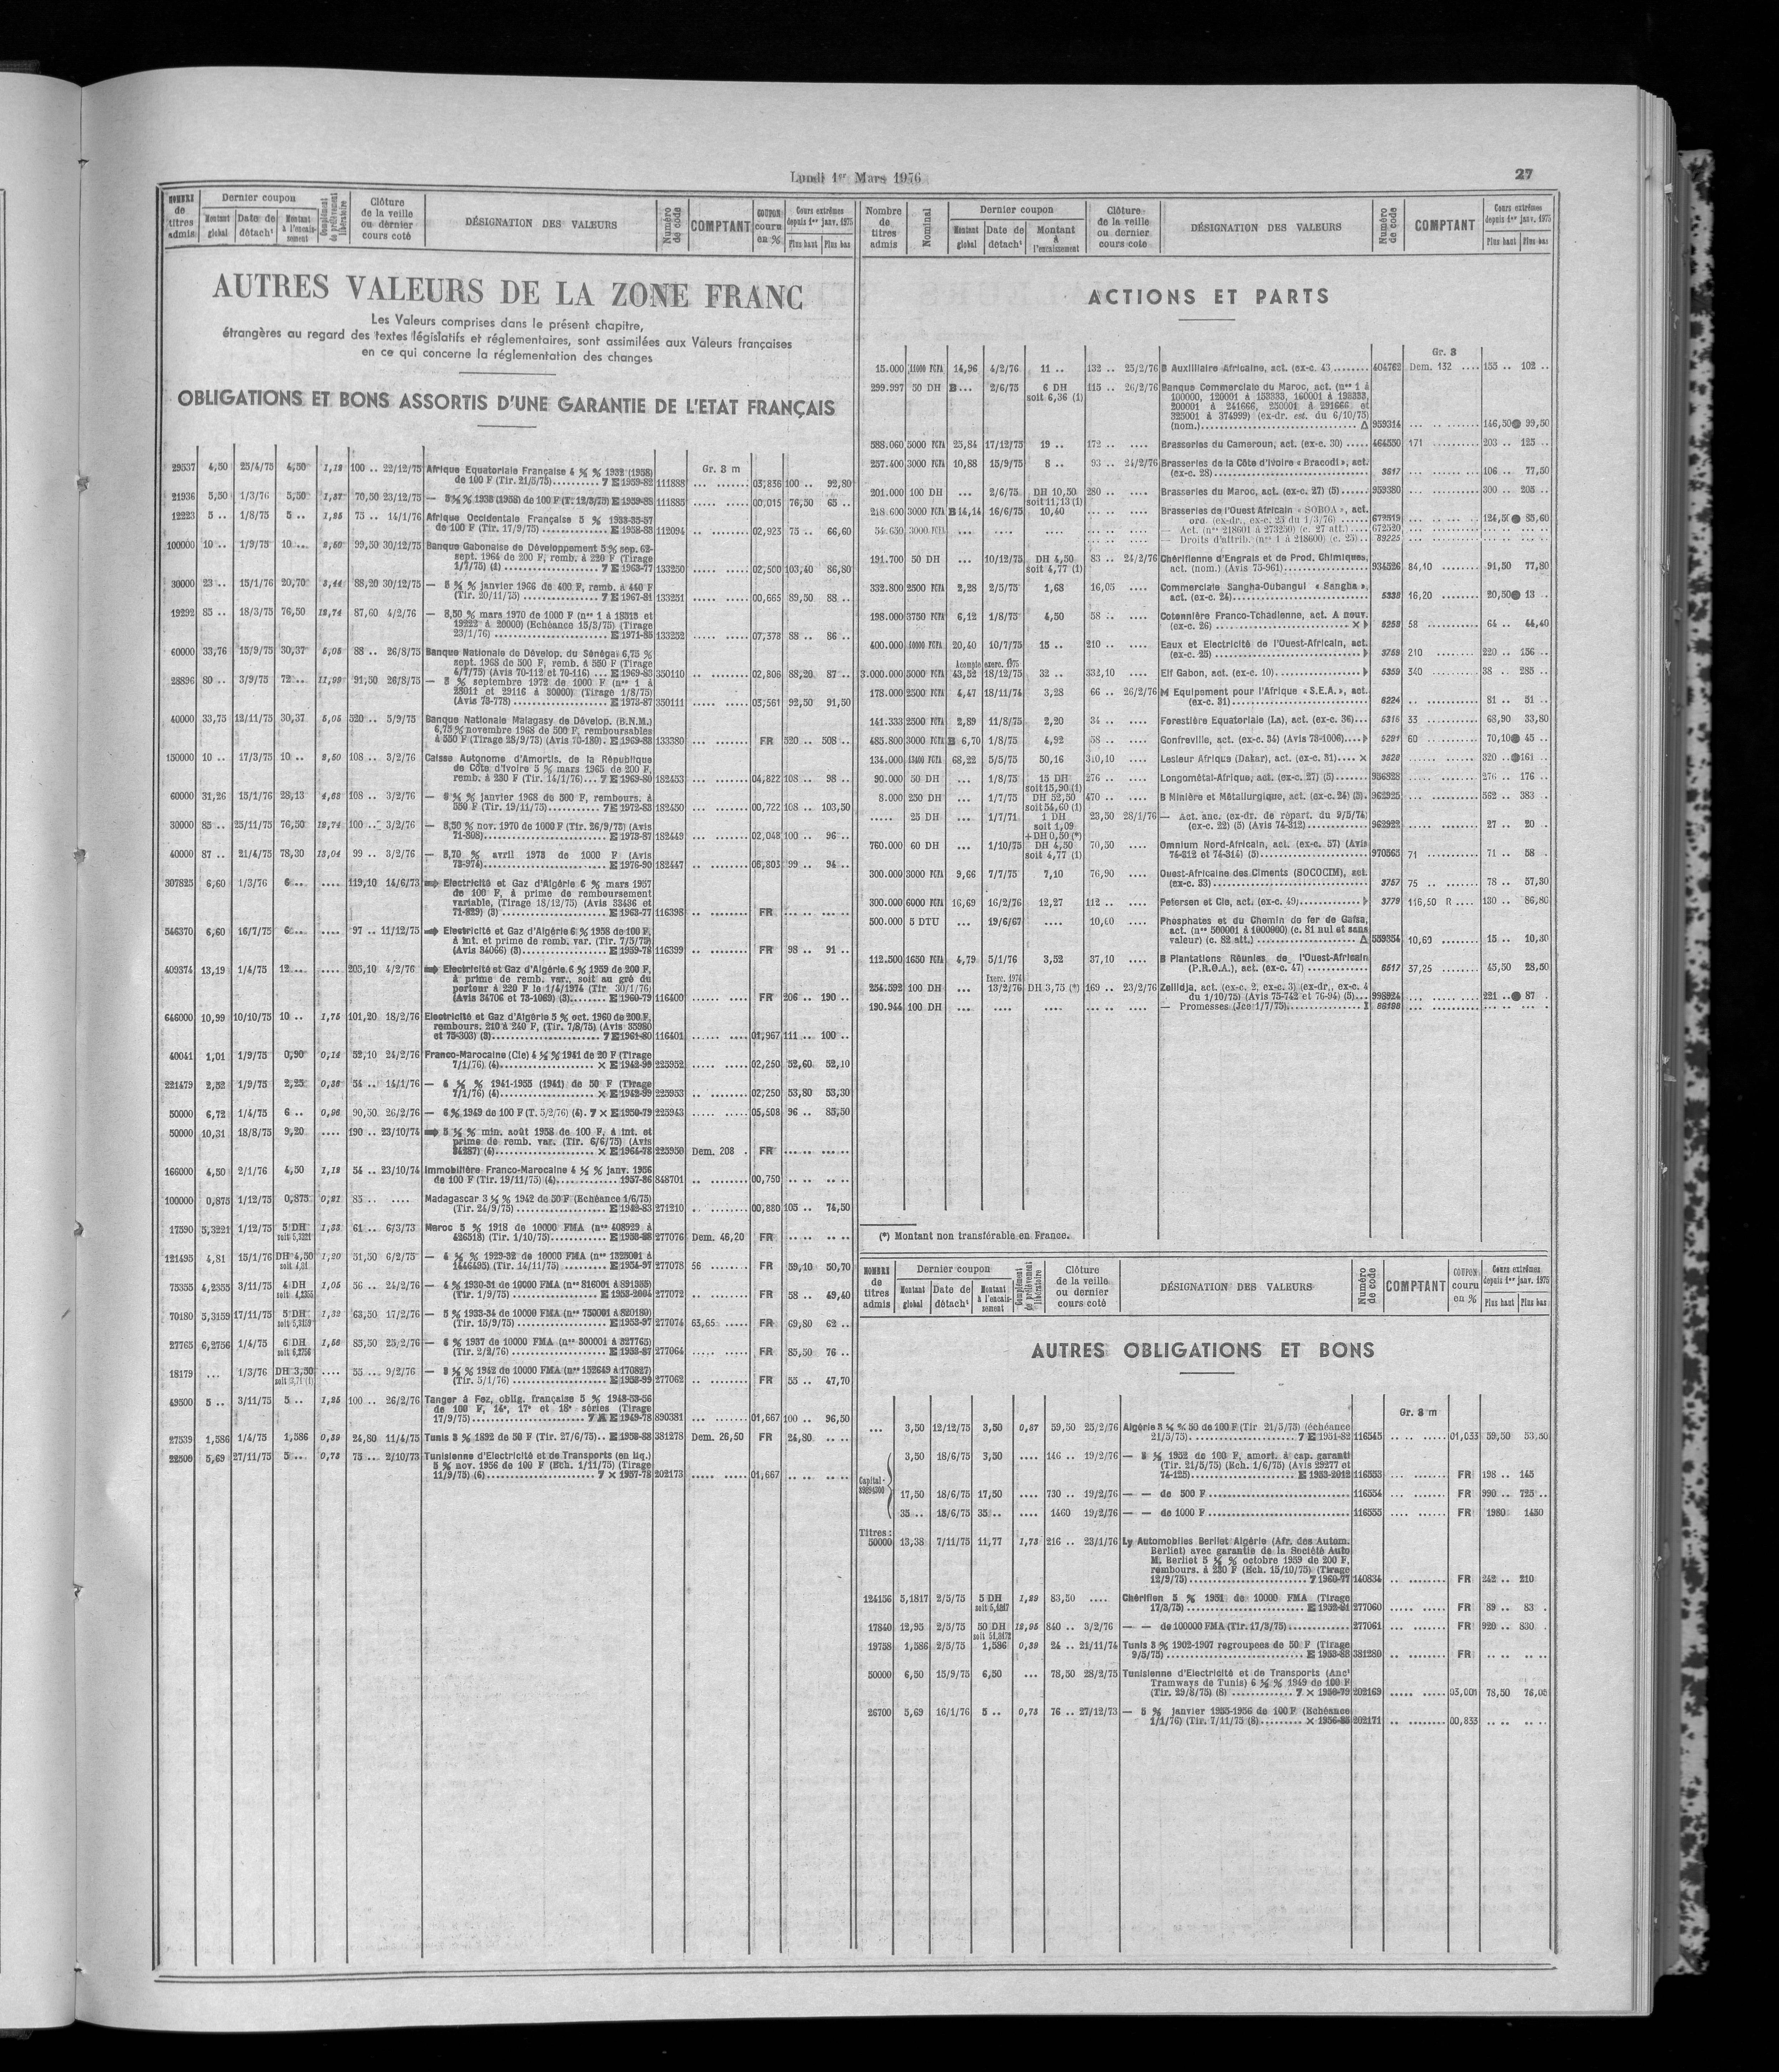 Lundi 1er Mars 1976
27
NOMBRE de titres admis
Dernier coupon
Montant global
Date de détacht
Montant à l'encaissement
Complément de prélèvement libératoire
Clôture de la veille ou dernier cours coté
DÉSIGNATION DES VALEURS
Numéro de code
COMPTANT
COUPON couru en %
Cours extrêmes depuis 1er janv. 1975
Plus haut
Plus bas
AUTRES VALEURS DE LA ZONE FRANC
Les Valeurs comprises dans le présent chapitre,
étrangères au regard des textes législatifs et réglementaires, sont assimilées aux Valeurs françaises
en ce qui concerne la réglementation des changes
OBLIGATIONS ET BONS ASSORTIS D'UNE GARANTIE DE L'ETAT FRANÇAIS
Gr. 8 m
29537 4,50 25/4/75 4,50 1,12 100 .. 22/12/75 Afrique Equatoriale Française 4 ½ % 1932 (1958)
de 100 F (Tir. 21/5/75) .......... 7 E 1959-82 111888 ... ....... 03,836 100 .. 92,80
21936 5,50 1/3/76 5,50 1,37 70,50 23/12/75 — 5 ½ % 1933 (1958) de 100 F (T. 12/3/75) E 1959-88 111885 ..... ..... 00,015 76,50 65 ..
12223 5 .. 1/8/75 5 .. 1,25 75 .. 14/1/76 Afrique Occidentale Française 5 % 1933-35-57
de 100 F (Tir. 17/9/75) .............. E 1958-88 112094 .. ........ 02,923 75 .. 66,60
100000 10 .. 1/9/75 10 ... 2,50 99,50 30/12/75 Banque Gabonaise de Développement 5 % sep. 62-
sept. 1964 de 200 F, remb. à 220 F (Tirage
1/7/75) (1) .................. 7 E 1963-77 133250 ... ....... 02,500 103,40 86,80
30000 23 .. 15/1/76 20,70 3,44 88,20 30/12/75 — 5 ¾ % janvier 1966 de 400 F, remb. à 440 F
(Tir. 20/11/75) ................. 7 E 1967-81 133251 ..... ..... 00,665 89,50 88 ..
19292 85 .. 18/3/75 76,50 12,74 87,60 4/2/76 — 8,50 % mars 1970 de 1000 F (nos 1 à 18515 et
19222 à 20000) (Echéance 15/3/75) (Tirage
23/1/76) ........................ E 1971-85 133252 ..... ..... 07,378 88 .. 86 ..
60000 33,76 15/9/75 30,37 5,05 88 .. 26/8/75 Banque Nationale de Dévelop. du Sénégal 6,75 %
sept. 1968 de 500 F, remb. à 550 F (Tirage
4/7/75) (Avis 70-112 et 70-116) ... E 1969-83 350110 .. ........ 02,806 88,20 87 ..
28896 80 .. 3/9/75 72 .. 11,99 91,50 26/8/75 — 8 % septembre 1972 de 1000 F (nos 1 à
28011 et 29116 à 30000) (Tirage 1/8/75)
(Avis 73-778) .................... E 1973-87 350111 ..... ..... 03,561 92,50 91,50
40000 33,75 12/11/75 30,37 5,05 520 .. 5/9/75 Banque Nationale Malagasy de Dévelop. (B.N.M.)
6,75 % novembre 1968 de 500 F, remboursables
à 550 F (Tirage 28/9/73) (Avis 70-180). E 1969-88 133380 ... ........ FR 520 .. 508 ..
150000 10 .. 17/3/75 10 .. 2,50 108 .. 3/2/76 Caisse Autonome d'Amortis. de la République
de Côte d'Ivoire 5 % mars 1965 de 200 F,
remb. à 230 F (Tir. 14/1/76) ... 7 E 1969-80 182453 ... ........ 04,822 108 .. 98 ..
60000 31,26 15/1/76 28,13 4,68 108 .. 3/2/76 — 6 ¼ % janvier 1968 de 500 F, rembours. à
550 F (Tir. 19/11/75) ........... 7 E 1972-83 182450 ... ........ 00,722 108 .. 103,50
30000 85 .. 25/11/75 76,50 12,74 100 .. 3/2/76 — 8,50 % nov. 1970 de 1000 F (Tir. 26/9/75) (Avis
71-808) ........................ E 1973-87 182449 ... ........ 02,048 100 .. 96 ..
40000 87 .. 21/4/75 78,30 13,04 99 .. 3/2/76 — 8,70 % avril 1973 de 1000 F (Avis
73-974) ........................ E 1976-90 182447 .. ........ 06,803 99 .. 94 ..
307825 6,60 1/3/76 6 ... .... 119,10 14/6/73 Electricité et Gaz d'Algérie 6 % mars 1957
de 100 F, à prime de remboursement
variable, (Tirage 18/12/75) (Avis 33436 et
71-829) (3) .................... E 1963-77 116398 .. ........ FR
546370 6,60 16/7/75 6 ... .... 97 .. 11/12/75 Electricité et Gaz d'Algérie 6 % 1958 de 100 F,
à int. et prime de remb. var. (Tir. 7/5/75)
(Avis 34066) (3) ................ E 1959-78 116399 .. ........ FR 98 .. 91 ..
409374 13,19 1/4/75 12 ... .... 205,10 4/2/76 Electricité et Gaz d'Algérie 6 % 1959 de 200 F,
à prime de remb. var., soit au gré du
porteur à 220 F le 1/4/1974 (Tir. 30/1/76)
(Avis 34706 et 73-1069) (3) ....... E 1960-79 116400 ...... .... FR 206 .. 190 ..
646000 10,99 10/10/75 10 .. 1,75 101,20 18/2/76 Electricité et Gaz d'Algérie 5 % oct. 1960 de 200 F,
rembours. 210 à 240 F, (Tir. 7/8/75) (Avis 35980
et 75-303) (3) .................. 7 E 1961-80 116401 ...... .... 01,967 111 .. 100 ..
40041 1,01 1/9/75 0,90 0,14 52,10 24/2/76 Franco-Marocaine (Cie) 4 ½ % 1941 de 20 F (Tirage
7/1/76) (4) .................. × E 1942-99 225952 ..... ..... 02,250 52,60 52,10
221479 2,52 1/9/75 2,25 0,36 54 .. 14/1/76 — 4 ½ % 1941-1955 (1941) de 50 F (Tirage
7/1/76) (4) .................. × E 1942-99 225953 .. ........ 02,250 53,80 53,30
50000 6,72 1/4/75 6 .. 0,96 90,50 26/2/76 — 6 % 1949 de 100 F (T. 5/2/76) (4). 7 × E 1950-79 225943 ..... ..... 05,508 96 .. 85,50
50000 10,31 18/8/75 9,20 .... 190 .. 23/10/74 5 ½ % min. août 1958 de 100 F, à int. et
prime de remb. var. (Tir. 6/6/75) (Avis
34287) (4) ................... × E 1964-78 225950 Dem. 208 . FR
166000 4,50 2/1/76 4,50 1,12 54 .. 23/10/74 Immobilière Franco-Marocaine 4 ½ % janv. 1956
de 100 F (Tir. 19/11/75) (4) ............ 1957-86 848701 .. ........ 00,750
100000 0,875 1/12/75 0,875 0,21 83 .. .... Madagascar 3 ½ % 1942 de 50 F (Echéance 1/6/75)
(Tir. 24/9/75) ................. E 1942-83 271210 .. ........ 00,880 105 .. 74,50
17590 5,3221 1/12/75 5 DH soit 5,3221 1,33 61 .. 6/3/73 Maroc 5 % 1918 de 10000 FMA (nos 408929 à
426518) (Tir. 1/10/75) ............ E 1958-88 277076 Dem. 46,20 FR
121495 4,81 15/1/76 DH 4,50 soit 4,81 1,20 51,50 6/2/75 — 4 ½ % 1929-32 de 10000 FMA (nos 1325001 à
1446495) (Tir. 14/11/75) ......... E 1954-97 277078 56 ........ FR 59,10 50,70
75355 4,2355 3/11/75 4 DH soit 4,2355 1,05 56 .. 24/2/76 — 4 % 1930-31 de 10000 FMA (nos 816001 à 891355)
(Tir. 1/9/75) .................. E 1953-2004 277072 .. ........ FR 58 .. 49,40
70180 5,3159 17/11/75 5 DH soit 5,3159 1,32 63,50 17/2/76 — 5 % 1933-34 de 10000 FMA (nos 750001 à 820180)
(Tir. 15/9/75) .................. E 1953-97 277074 63,65 ..... FR 69,80 62 ..
27765 6,2756 1/4/75 6 DH soit 6,2756 1,56 83,50 25/2/76 — 6 % 1937 de 10000 FMA (nos 300001 à 327765)
(Tir. 2/2/76) .................. E 1953-87 277064 ..... ..... FR 85,50 76 ..
18179 ... 1/3/76 DH 3,50 .... 55 ... 9/2/76 — 3 ½ % 1942 de 10000 FMA (nos 152649 à 170827)
(Tir. 5/1/76) .................. E 1953-99 277062 .. ........ FR 55 .. 47,70
49500 5 .. 3/11/75 5 .. 1,25 100 .. 26/2/76 Tanger à Fez, oblig. française 5 % 1948-53-56
de 100 F, 14e, 17e et 18e séries (Tirage
17/9/75) ...................... E 1949-78 890381 ... ....... 01,667 100 .. 96,50
27539 1,586 1/4/75 1,586 0,39 24,80 11/4/75 Tunis 3 % 1892 de 50 F (Tir. 27/6/75) .. E 1958-88 381278 Dem. 26,50 FR 24,80 .. ..
22500 5,69 27/11/75 5 ... 0,73 75 ... 2/10/73 Tunisienne d'Electricité et de Transports (en liq.)
5 % nov. 1956 de 100 F (Ech. 1/11/75) (Tirage
11/9/75) (6) ................... 7 × 1957-78 202173 ..... ..... 01,667
Nombre de titres admis
Nominal
Dernier coupon
Montant global
Date de détacht
Montant à l'encaissement
Clôture de la veille ou dernier cours coté
DÉSIGNATION DES VALEURS
Numéro de code
COMPTANT
Cours extrêmes depuis 1er janv. 1975
Plus haut
Plus bas
ACTIONS ET PARTS
Gr. 8
15.000 11000 FCFA 14,96 4/2/76 11 .. 132 .. 25/2/76 B Auxiliaire Africaine, act. (ex-c. 43 ........ 404762 Dem. 132 .... 155 .. 102 ..
299.997 50 DH B... 2/6/75 6 DH soit 6,36 (1) 115 .. 26/2/76 Banque Commerciale du Maroc, act. (nos 1 à
100000, 120001 à 153333, 160001 à 193333,
200001 à 241666, 250001 à 291666 et
325001 à 374999) (ex-dr. est. du 6/10/75)
(nom.) ................................ Δ 959314 ... .. ...... 146,50 99,50
588.060 5000 FCFA 25,84 17/12/75 19 .. 172 .. .... Brasseries du Cameroun, act. (ex-c. 30) ..... 464550 171 .......... 203 .. 125 ..
257.400 3000 FCFA 10,88 15/9/75 8 .. 93 .. 24/2/76 Brasseries de la Côte d'Ivoire « Bracodi », act.
(ex-c. 28) ................................ 3617 ... .......... 106 .. 77,50
201.000 100 DH ... 2/6/75 DH 10,50 soit 11,13 (1) 280 .. .... Brasseries du Maroc, act. (ex-c. 27) (5) ...... 959380 ... .......... 300 .. 205 ..
218.600 3000 FCFA B 14,14 16/6/75 10,40 Brasseries de l'Ouest Africain « SOBOA », act.
ord. (ex-dr., ex-c. 25 du 1/3/76) ...... 672519 124,50 85,60
54.650 3000 FCFA ... .... .... — Act. (nos 218601 à 273250) (c. 27 att.) .... 672520
— Droits d'attrib. (nos 1 à 218600) (c. 25) .. 89225
191.700 50 DH ... 10/12/75 DH 4,50 soit 4,77 (1) 83 .. 24/2/76 Chérifienne d'Engrais et de Prod. Chimiques,
act. (nom.) (Avis 75-961) .................. 934526 84,10 ........ 91,50 77,80
332.800 2500 FCFA 2,28 2/5/75 1,68 16,05 .... Commerciale Sangha-Oubangui « Sangha »,
act. (ex-c. 24) ............................. 5338 16,20 ........ 20,50 13 ..
198.000 3750 FCFA 6,12 1/8/75 4,50 58 .. .... Cotonnière Franco-Tchadienne, act. A nouv.
(ex-c. 26) ............................... × 5258 58 .......... 64 .. 44,40
400.000 10000 FCFA 20,40 10/7/75 15 .. 210 .. .... Eaux et Electricité de l'Ouest-Africain, act.
(ex-c. 25) ................................ 3759 210 .......... 220 .. 156 ..
Acompte exerc. 1975
3.000.000 5000 FCFA 43,52 18/12/75 32 .. 332,10 .... Elf Gabon, act. (ex-c. 10) .................. 5359 340 .......... 38 .. 285 ..
178.000 2500 FCFA 4,47 18/11/74 3,28 66 .. 26/2/76 M Equipement pour l'Afrique « S.E.A. », act.
(ex-c. 31) ................................ 6224 .. .......... 81 .. 51 ..
141.333 2500 FCFA 2,89 11/8/75 2,20 34 .. .... Forestière Equatoriale (La), act. (ex-c. 36) ... 5316 33 .......... 68,90 33,80
485.800 3000 FCFA B 6,70 1/8/75 4,92 58 .. .... Gonfreville, act. (ex-c. 34) (Avis 73-1006) .... 5291 60 .......... 70,10 45 ..
134.000 13400 FCFA 68,22 5/5/75 50,16 310,10 .... Lesieur Afrique (Dakar), act. (ex-c. 31) .... × 3620 ... ........ 320 .. 161 ..
90.000 50 DH ... 1/8/75 15 DH soit 15,90 (1) 276 .. .... Longométal-Afrique, act. (ex-c. 27) (5) ....... 956828 ... .......... 276 .. 176 ..
8.000 250 DH ... 1/7/75 DH 52,50 soit 54,60 (1) 470 .. .... B Minière et Métallurgique, act. (ex-c. 24) (5). 962925 ... .......... 562 .. 383 ..
..... 25 DH ... 1/7/71 1 DH soit 1,09 + DH 0,50 (*) 23,50 28/1/76 — Act. anc. (ex-dr. de répart. du 9/5/74)
(ex-c. 22) (5) (Avis 74-312) .............. 962922 ..... ........ 27 .. 20 ..
760.000 60 DH ... 1/10/75 DH 4,50 soit 4,77 (1) 70,50 .... Omnium Nord-Africain, act. (ex-c. 57) (Avis
74-312 et 74-314) (5) ...................... 970565 71 .......... 71 .. 58 ..
300.000 3000 FCFA 9,66 7/7/75 7,10 76,90 .... Ouest-Africaine des Ciments (SOCOCIM), act.
(ex-c. 33) ................................ 3757 75 .. ....... 78 .. 57,30
300.000 6000 FCFA 16,69 16/2/76 12,27 112 .. .... Petersen et Cie, act. (ex-c. 49) ............. 3779 116,50 R .... 130 .. 86,80
500.000 5 DTU ... 19/6/67 .... 10,60 .... Phosphates et du Chemin de fer de Gafsa,
act. (nos 500001 à 1000000) (c. 81 nul et sans
valeur) (c. 82 att.) ...................... Δ 559354 10,60 ........ 15 .. 10,30
112.500 1650 FCFA 4,79 5/1/76 3,52 37,10 .... B Plantations Réunies de l'Ouest-Africain
(P.R.O.A.), act. (ex-c. 47) ............. 6517 37,25 ........ 45,50 28,50
Exerc. 1974
254.592 100 DH ... 13/2/76 DH 3,75 (*) 169 .. 23/2/76 Zellidja, act. (ex-c. 2, ex-c. 3) (ex-dr., ex-c. 4
du 1/10/75) (Avis 75-742 et 76-94) (5) ... 998924 ... ..... .... 221 .. 87 ..
190.944 100 DH ... .... .... — Promesses (Jce 1/7/75) .................. 86198
(*) Montant non transférable en France.
NOMBRE de titres admis
Dernier coupon
Montant global
Date de détacht
Montant à l'encaissement
Complément de prélèvement libératoire
Clôture de la veille ou dernier cours coté
DÉSIGNATION DES VALEURS
Numéro de code
COMPTANT
COUPON couru en %
Cours extrêmes depuis 1er janv. 1975
Plus haut
Plus bas
AUTRES OBLIGATIONS ET BONS
Gr. 8 m
... 3,50 12/12/75 3,50 0,87 59,50 25/2/76 Algérie 3 ½ % 50 de 100 F (Tir 21/5/75) (échéance
21/5/75) ...................... 7 E 1951-82 116545 .. .. ..... 01,033 59,50 53,50
Capital: 89894300
3,50 18/6/75 3,50 .... 146 .. 19/2/76 — 3 ½ % 1952 de 100 F, amort. à cap. garanti
(Tir. 21/5/75) (Ech. 1/6/75) (Avis 29277 et
74-125) ....................... E 1953-2012 116553 ... ....... FR 198 .. 145
17,50 18/6/75 17,50 .... 730 .. 19/2/76 — — de 500 F ............................ 116554 ... ....... FR 990 .. 725 ..
35 .. 18/6/75 35 .. .... 1460 19/2/76 — — de 1000 F ............................ 116555 .... ...... FR 1980 1450
Titres:
50000 13,38 7/11/75 11,77 1,73 216 .. 23/1/76 Ly Automobiles Berliet Algérie (Afr. des Autom.
Berliet) avec garantie de la Société Auto
M. Berliet 5 ½ % octobre 1959 de 200 F,
rembours. à 230 F (Ech. 15/10/75) (Tirage
12/9/75) ......................... 7 1960-77 140834 .. ........ FR 242 .. 210
124156 5,1817 2/5/75 5 DH soit 5,1817 1,29 83,50 .... Chérifien 5 % 1951 de 10000 FMA (Tirage
17/3/75) ....................... E 1952-81 277060 ..... ..... FR 89 .. 83 .
17840 12,95 2/5/75 50 DH 12,95 840 .. 3/2/76 — — de 100000 FMA (Tir. 17/3/75) ............ 277061 ... ....... FR 920 .. 830 .
19758 1,586 2/5/75 1,586 0,39 24 .. 21/11/74 Tunis 3 % 1902-1907 regroupées de 50 F (Tirage
9/5/75) ........................ E 1953-88 381280 .. ........ FR
50000 6,50 15/9/75 6,50 ... 78,50 28/2/75 Tunisienne d'Electricité et de Transports (Anct
Tramways de Tunis) 6 ½ % 1949 de 100 F
(Tir. 29/8/75) (8) ............. 7 × 1950-79 202169 ..... ..... 03,001 78,50 76,05
26700 5,69 16/1/76 5 .. 0,73 76 .. 27/12/73 — 5 % janvier 1955-1956 de 100 F (Echéance
1/1/76) (Tir. 7/11/75 (8) ......... × 1956-85 202171 .. ........ 00,833